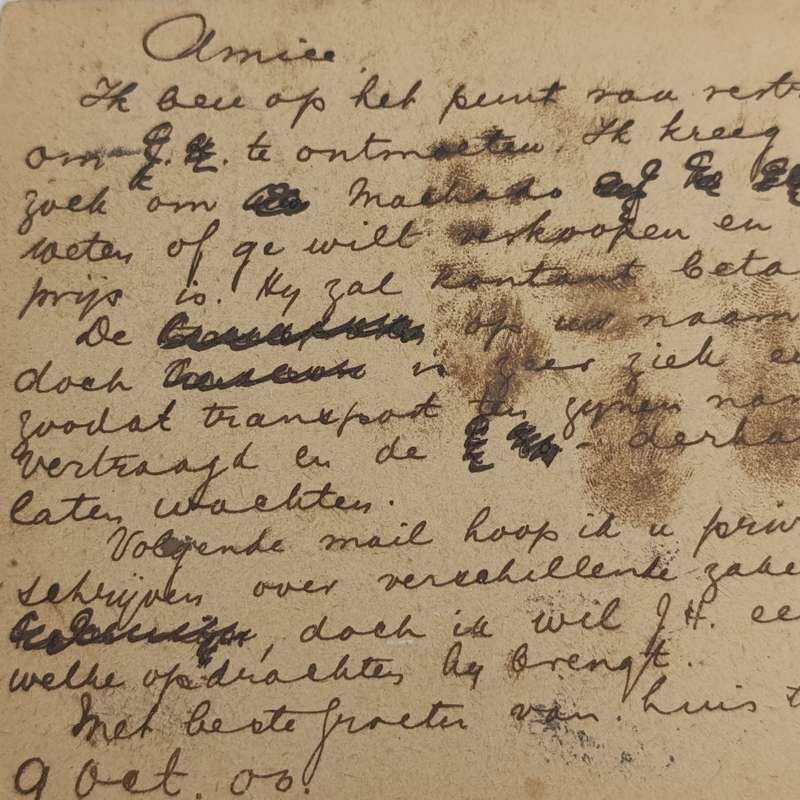 Amice
Ik ben op het punt van vertr
om J.H. te ontmoeten. Ik kreeg
zoek om Machado
weten of ge wilt verkoopen en
prijs is. Hy zal kontant beta
De op uw naam
doch is zeer ziek e
zoodat transport ten zynen na
vertraagd en de - derha
laten wachten.
Volgende mail hoop ik u priv
schrijven over verschillende zake
, doch ik wil J.H. ee
welke opdrachten hy brengt.
Met beste groeten van huis t
9 Oct. 00.